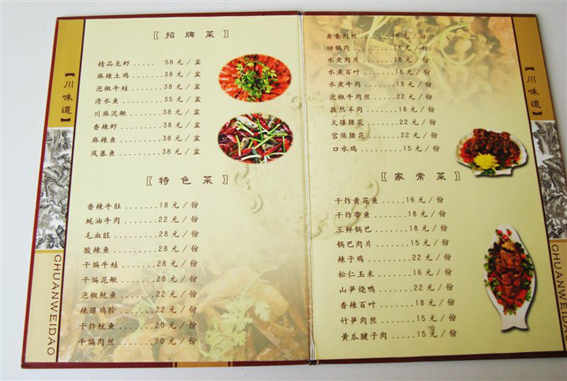 【川味道】
CHUANWEIDAO
〖招牌菜〗
精品龙虾 ..... 58元/盆
麻辣土鸡 ..... 38元/盆
泡椒牛蛙 ..... 38元/盆
清水鱼 ..... 38元/盆
川麻泥鳅 ..... 38元/盆
香辣虾 ..... 38元/盆
麻辣鱼 ..... 38元/盆
凤慕鱼 ..... 38元/盆
〖特色菜〗
香辣牛肚 ..... 18元/份
蚝油牛肉 ..... 22元/份
毛血旺 ..... 28元/份
酸辣鱼 ..... 28元/份
干煸牛蛙 ..... 28元/份
干煸泥鳅 ..... 28元/份
泡椒鱿鱼 ..... 22元/份
辣爆鸡胗 ..... 22元/份
干炸鱿鱼 ..... 22元/份
干煸肉丝 ..... 20元/份
鱼香肉丝 ..... 15元/份
回锅肉 ..... 18元/份
水煮肉片 ..... 18元/份
水煮百叶 ..... 18元/份
水煮牛肉 ..... 18元/份
泡椒牛肉丝 ..... 22元/份
孜然羊肉 ..... 22元/份
火爆腰花 ..... 22元/份
宫保腰花 ..... 22元/份
口水鸡 ..... 15元/份
〖家常菜〗
干炸黄花鱼 ..... 16元/份
干炸带鱼 ..... 18元/份
三鲜锅巴 ..... 18元/份
锅巴肉片 ..... 15元/份
辣子鸡 ..... 22元/份
松仁玉米 ..... 16元/份
山笋烧鸭 ..... 22元/份
香辣百叶 ..... 18元/份
竹笋肉丝 ..... 15元/份
黄瓜腱子肉 ..... 15元/份
【川味道】
CHUANWEIDAO